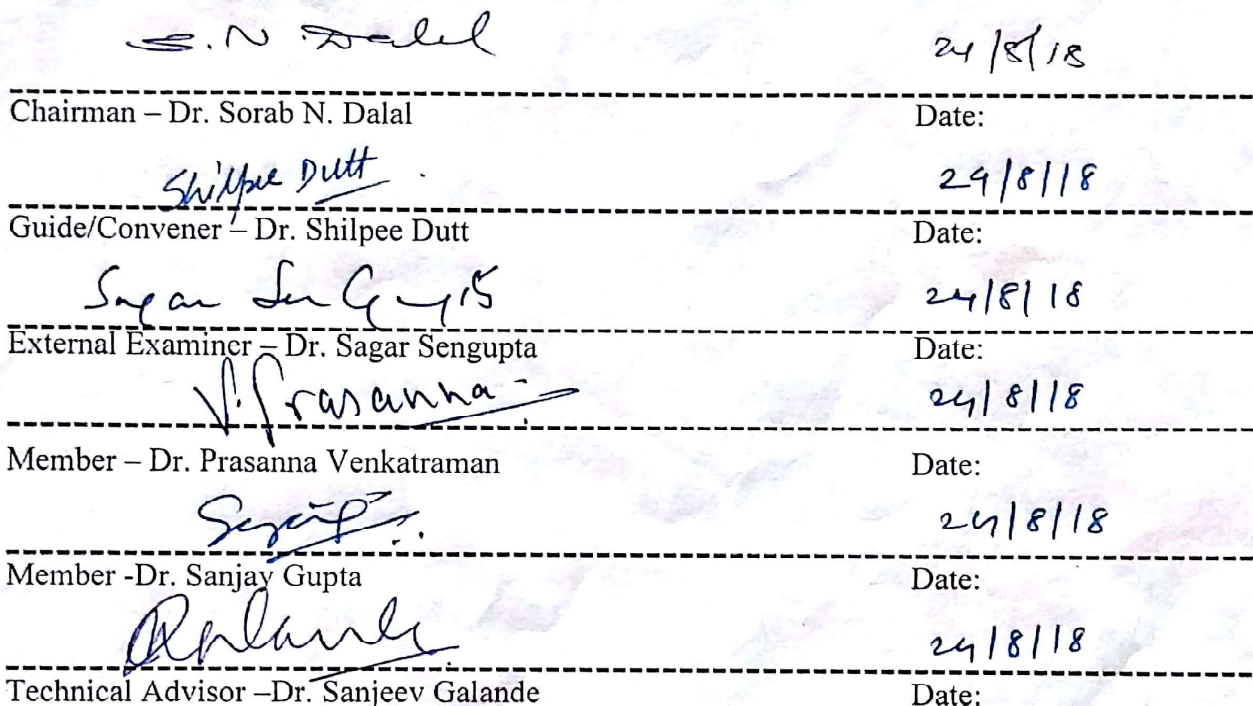 S. N Dalal 24/8/18
Chairman – Dr. Sorab N. Dalal Date:
Shilpee Dutt 24/8/18
Guide/Convener – Dr. Shilpee Dutt Date:
Sagar Sengupta 24/8/18
External Examiner – Dr. Sagar Sengupta Date:
V. Prasanna 24/8/18
Member – Dr. Prasanna Venkatraman Date:
24/8/18
Member -Dr. Sanjay Gupta Date:
24/8/18
Technical Advisor –Dr. Sanjeev Galande Date: